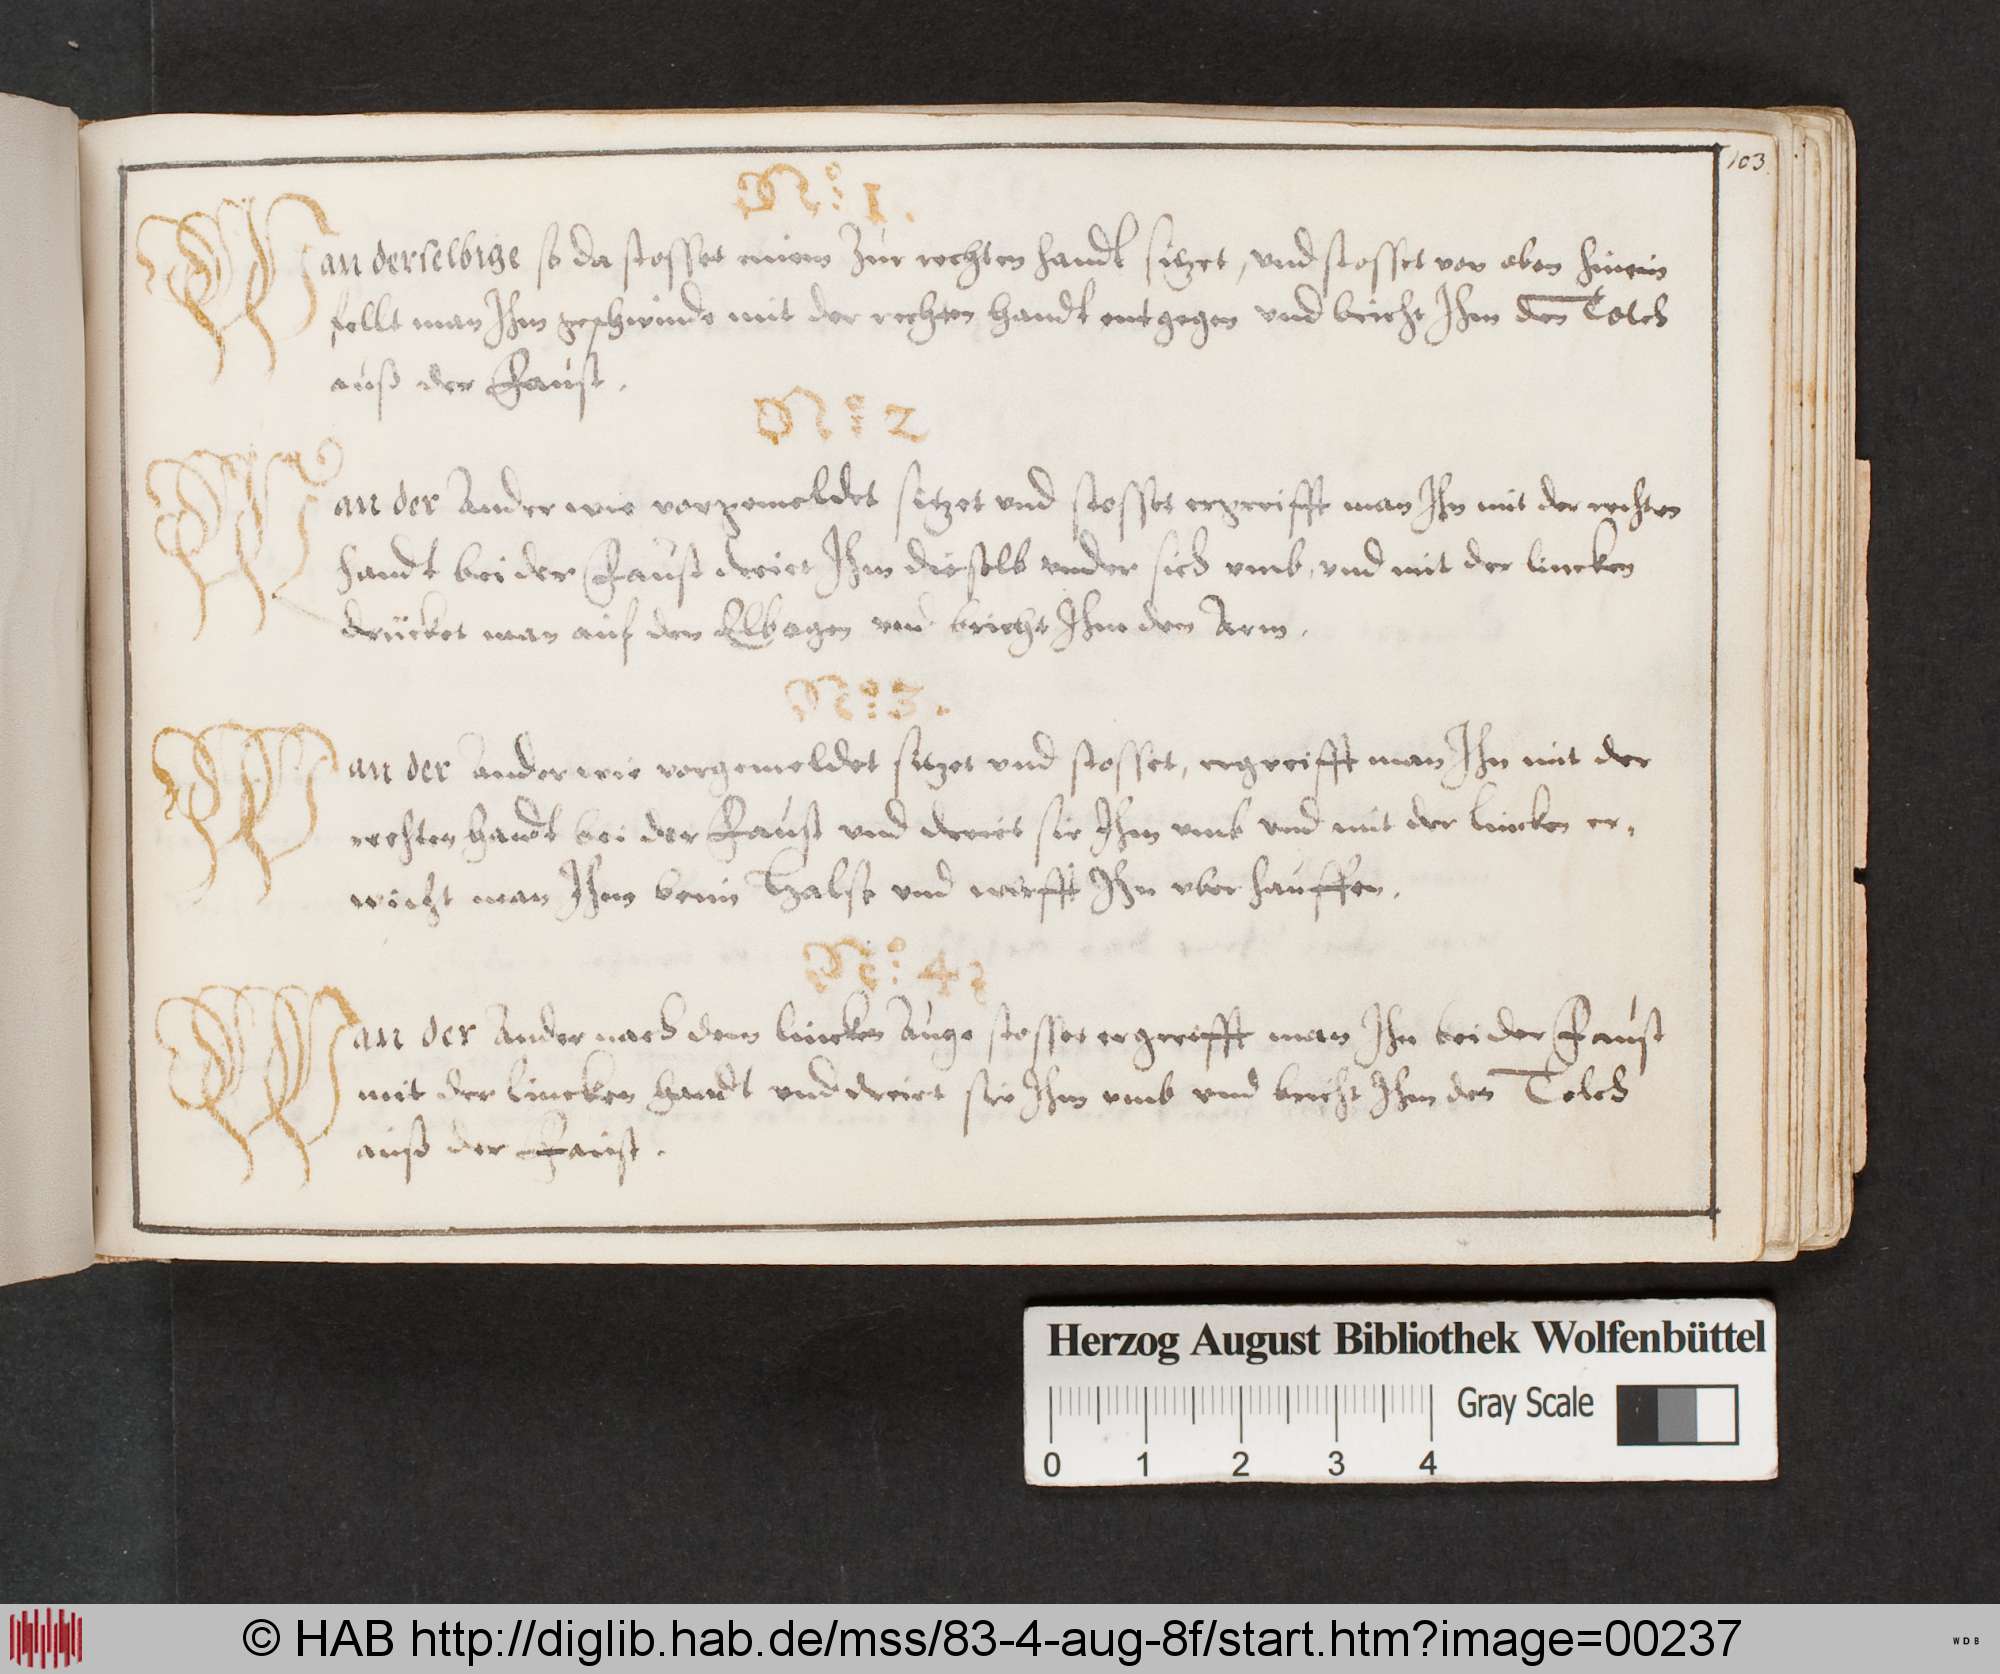 103.
N° 1.
Wan derselbige so da stosset einem Zur rechten handt sitzet, und stosset von oben hinein
fellt man Ihm geschwinde mit der rechten handt entgegen und bricht Ihm den Tolch
auß der Faust.
N° 2
Wan der Ander wie vorgemeldet sitzet und stosset ergreifft man Ihn mit der rechten
handt bei der Faust dreiet Ihm dieselb under sich umb, und mit der lincken
drücket man auf den Elbogen und bricht Ihm den Arm.
N° 3.
Wan der ander wie vorgemeldet sitzet und stosset, ergreifft man Ihn mit der
rechten handt bei der Faust und dreiet sie Ihm umb und mit der lincken er,
wischt man Ihm beim Halse und wirfft Ihn uber hauffen.
N° 4
Wan der Ander nach dem lincken Auge stosset ergreifft man Ihn bei der Faust
mit der lincken handt und dreiet sie Ihm umb und bricht Ihm den Tolch
auß der Faust.
Herzog August Bibliothek Wolfenbüttel
Gray Scale
0 1 2 3 4
© HAB http://diglib.hab.de/mss/83-4-aug-8f/start.htm?image=00237
WDB